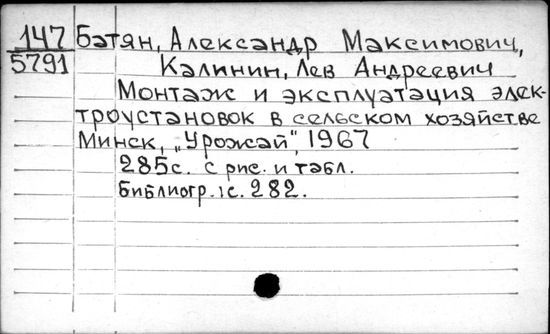 147 Батян, Александр Максимович,
5791 Калинин, Лев Андреевич
Монтаж и эксплуатация элек-
троустановок в сельском хозяйстве
Минск, „Урожай", 1967
285с. с рис. и табл.
Библиогр.: с. 282.